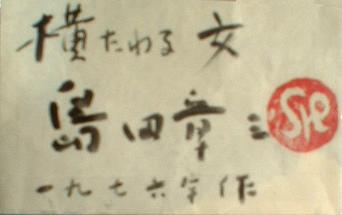 横たわる女
島田章三
一九七六年作